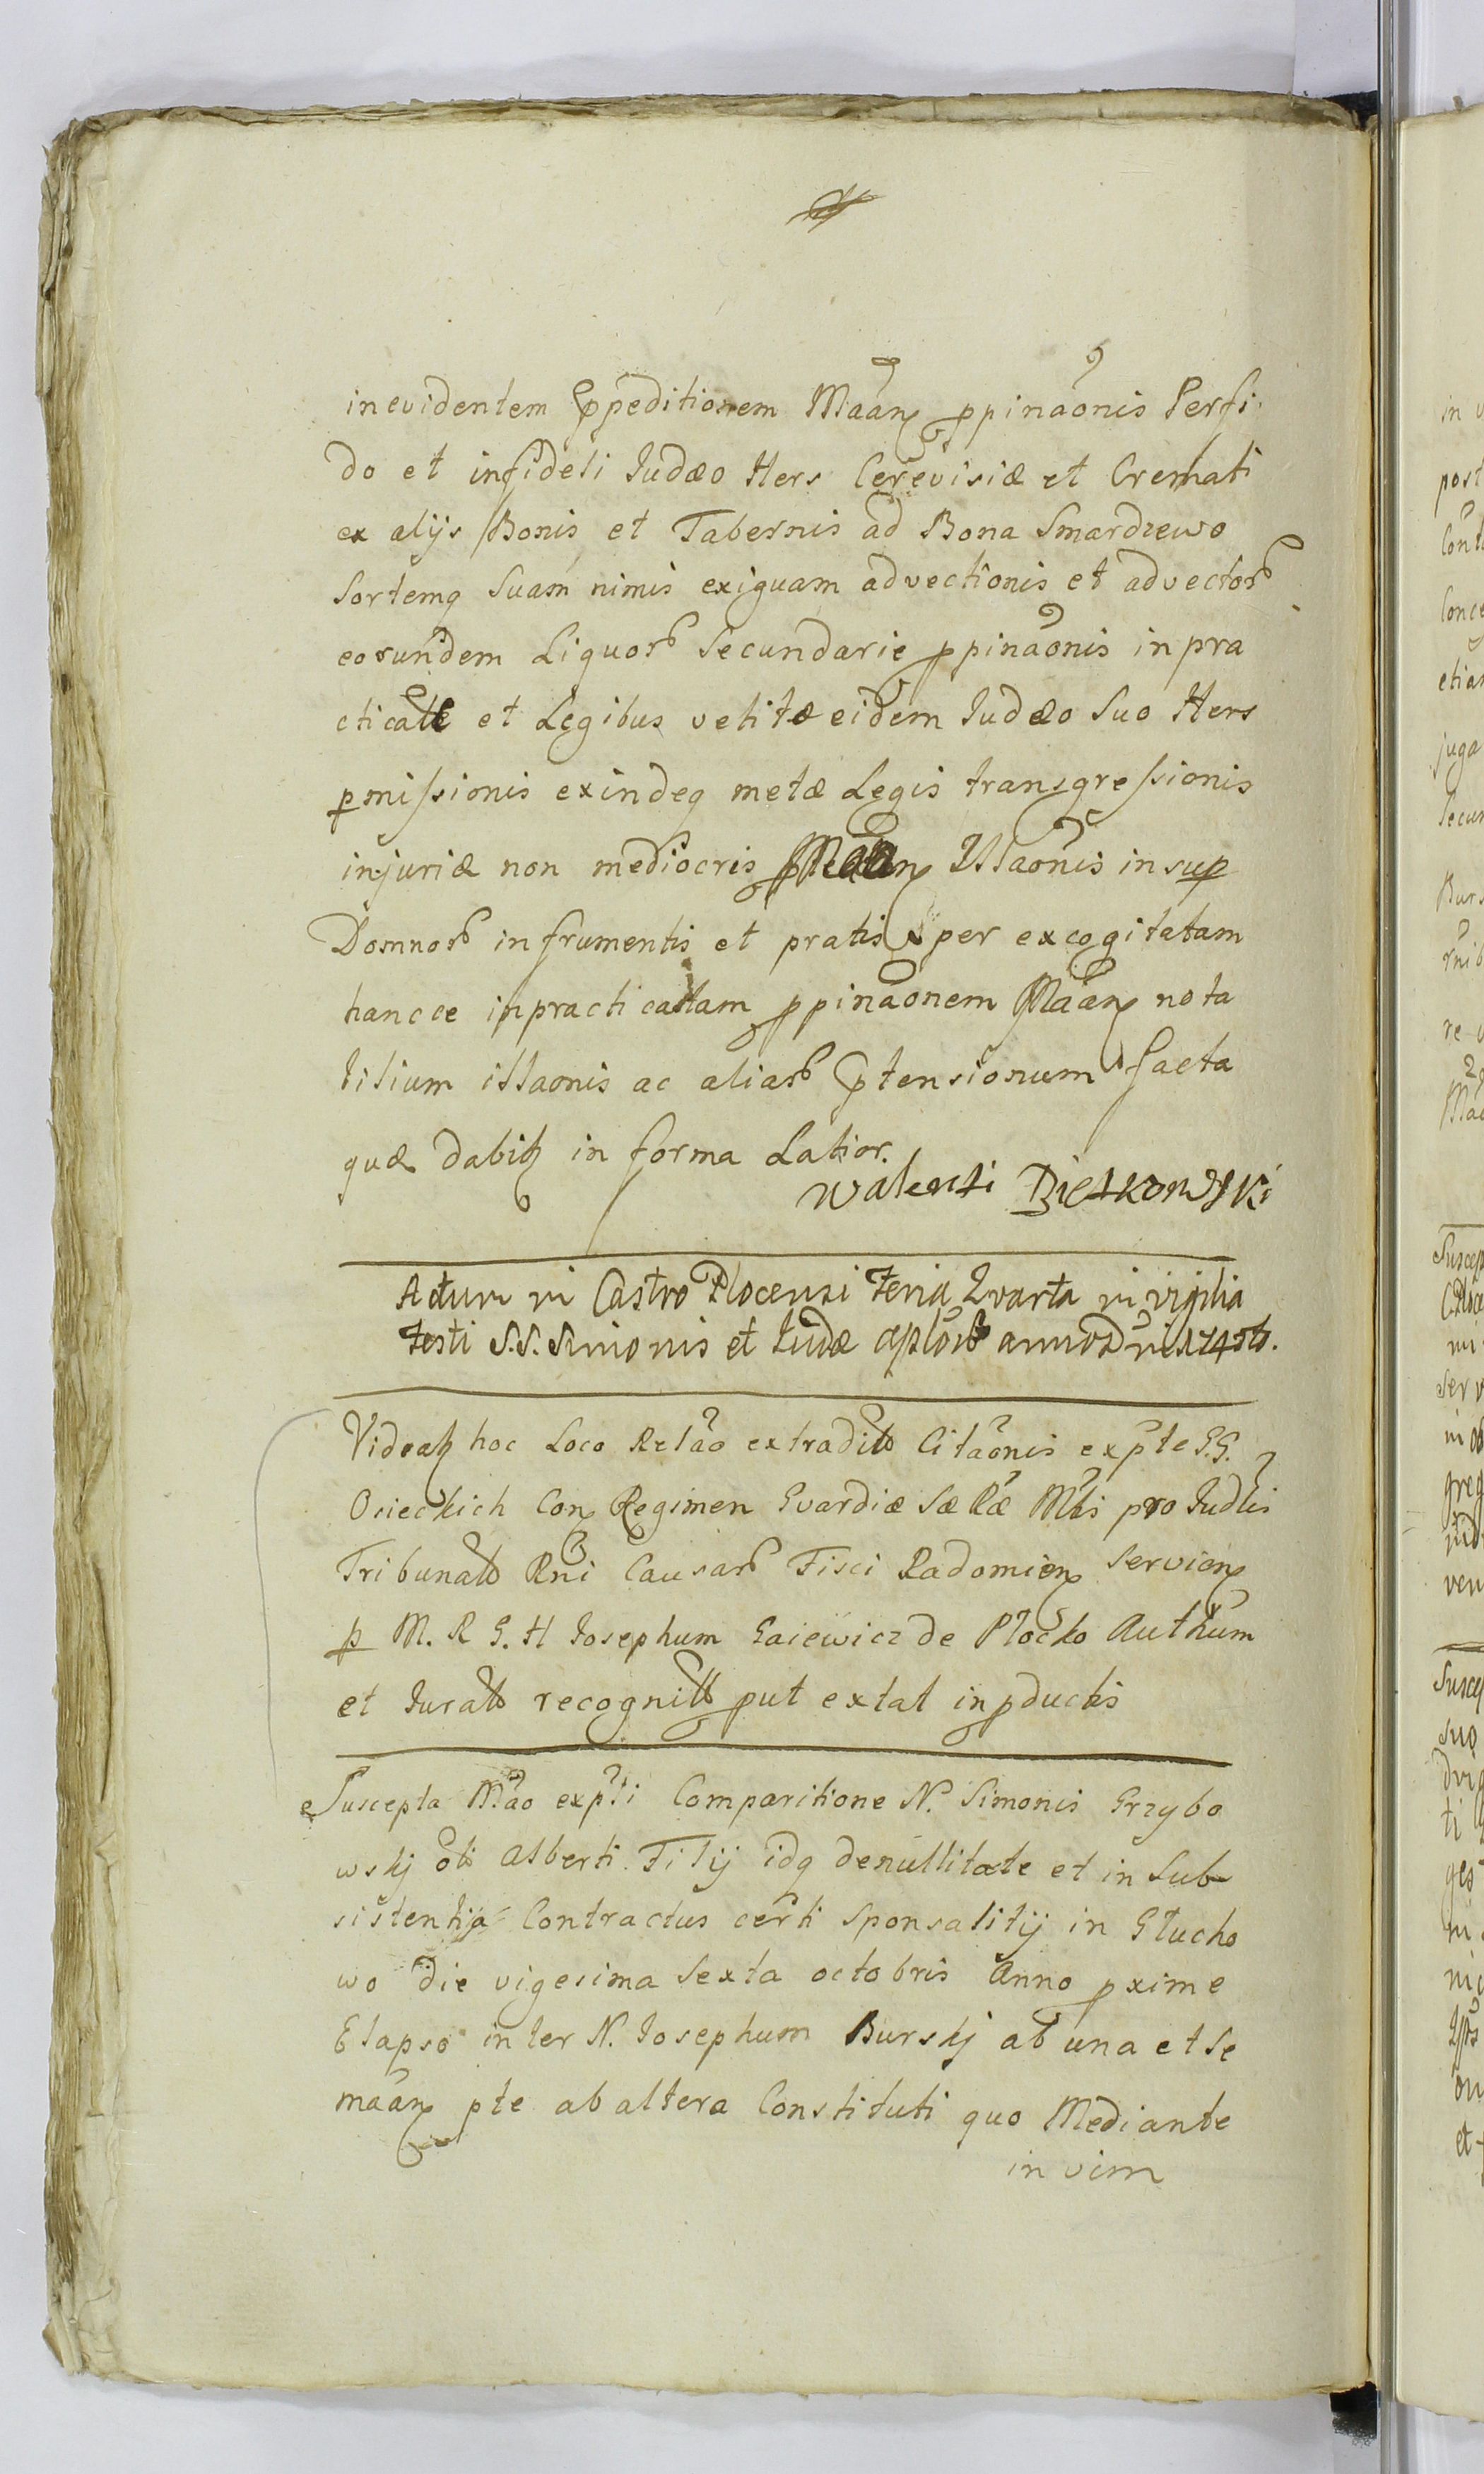 inevidentem Ppeditionem Maan ppinaonis Perfi
do et infideli Judæo Hers Cerevisiæ et Cremati
ex alijs Bonis et Tabernis ad Bona Smardzewo
Sortemq Suam nimis exiguam advectionis et advector
eorundem Liquor Secundarie ppinaonis inpra
cticatæ et Legibus vetitæ eidem Judæo Suo Hers
pmissionis exindeq metæ Legis transgressionis
injuriæ non mediocris Maan Illaonis insup
Damnor in frumentis et pratis per excogitatam
hancce inpracticatam ppinaonem Maan nota
bilium illaonis ac aliar Ptensionum facta
quæ dabitz in forma Latior.
Walenti Bietkowski
Actum in Castro Plocensi Feria Quarta in vigilia
Festi S.S. Simonis et Judæ aplor anno Dni 1745to.
Videatz hoc Loco Relao extradit Citaonis ex pte G.G.
Osieckich Con Regimen Gvardiæ Sæ Ræ Mtis pro Judtis
Tribunal Rni Causar Fisci Radomien Servien
p M. R G. H Josephum Gaiewicz de Plocko Authum
et Jurat recognit put extat in pductis
Suscepta Mao ex pti Comparitione N. Simonis Grzybo
wskj oti Alberti Filij idq denullitate et in Sub
sistentia Contractus certi Sponsalitij in Głucho
wo die vigesima Sexta octobris Anno pxime
Elapso inter N. Josephum Burskj ab una et Se
maan pte ab altera Constituti quo Mediante
in vim